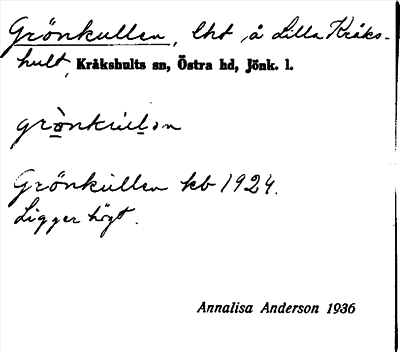 Grönkullen, lht å Lilla Kråks-
hult, Kråkshults sn, Östra hd, Jönk. l.
grònkullən
Grönkullen kb 1924.
Ligger högt.
Annalisa Anderson 1936